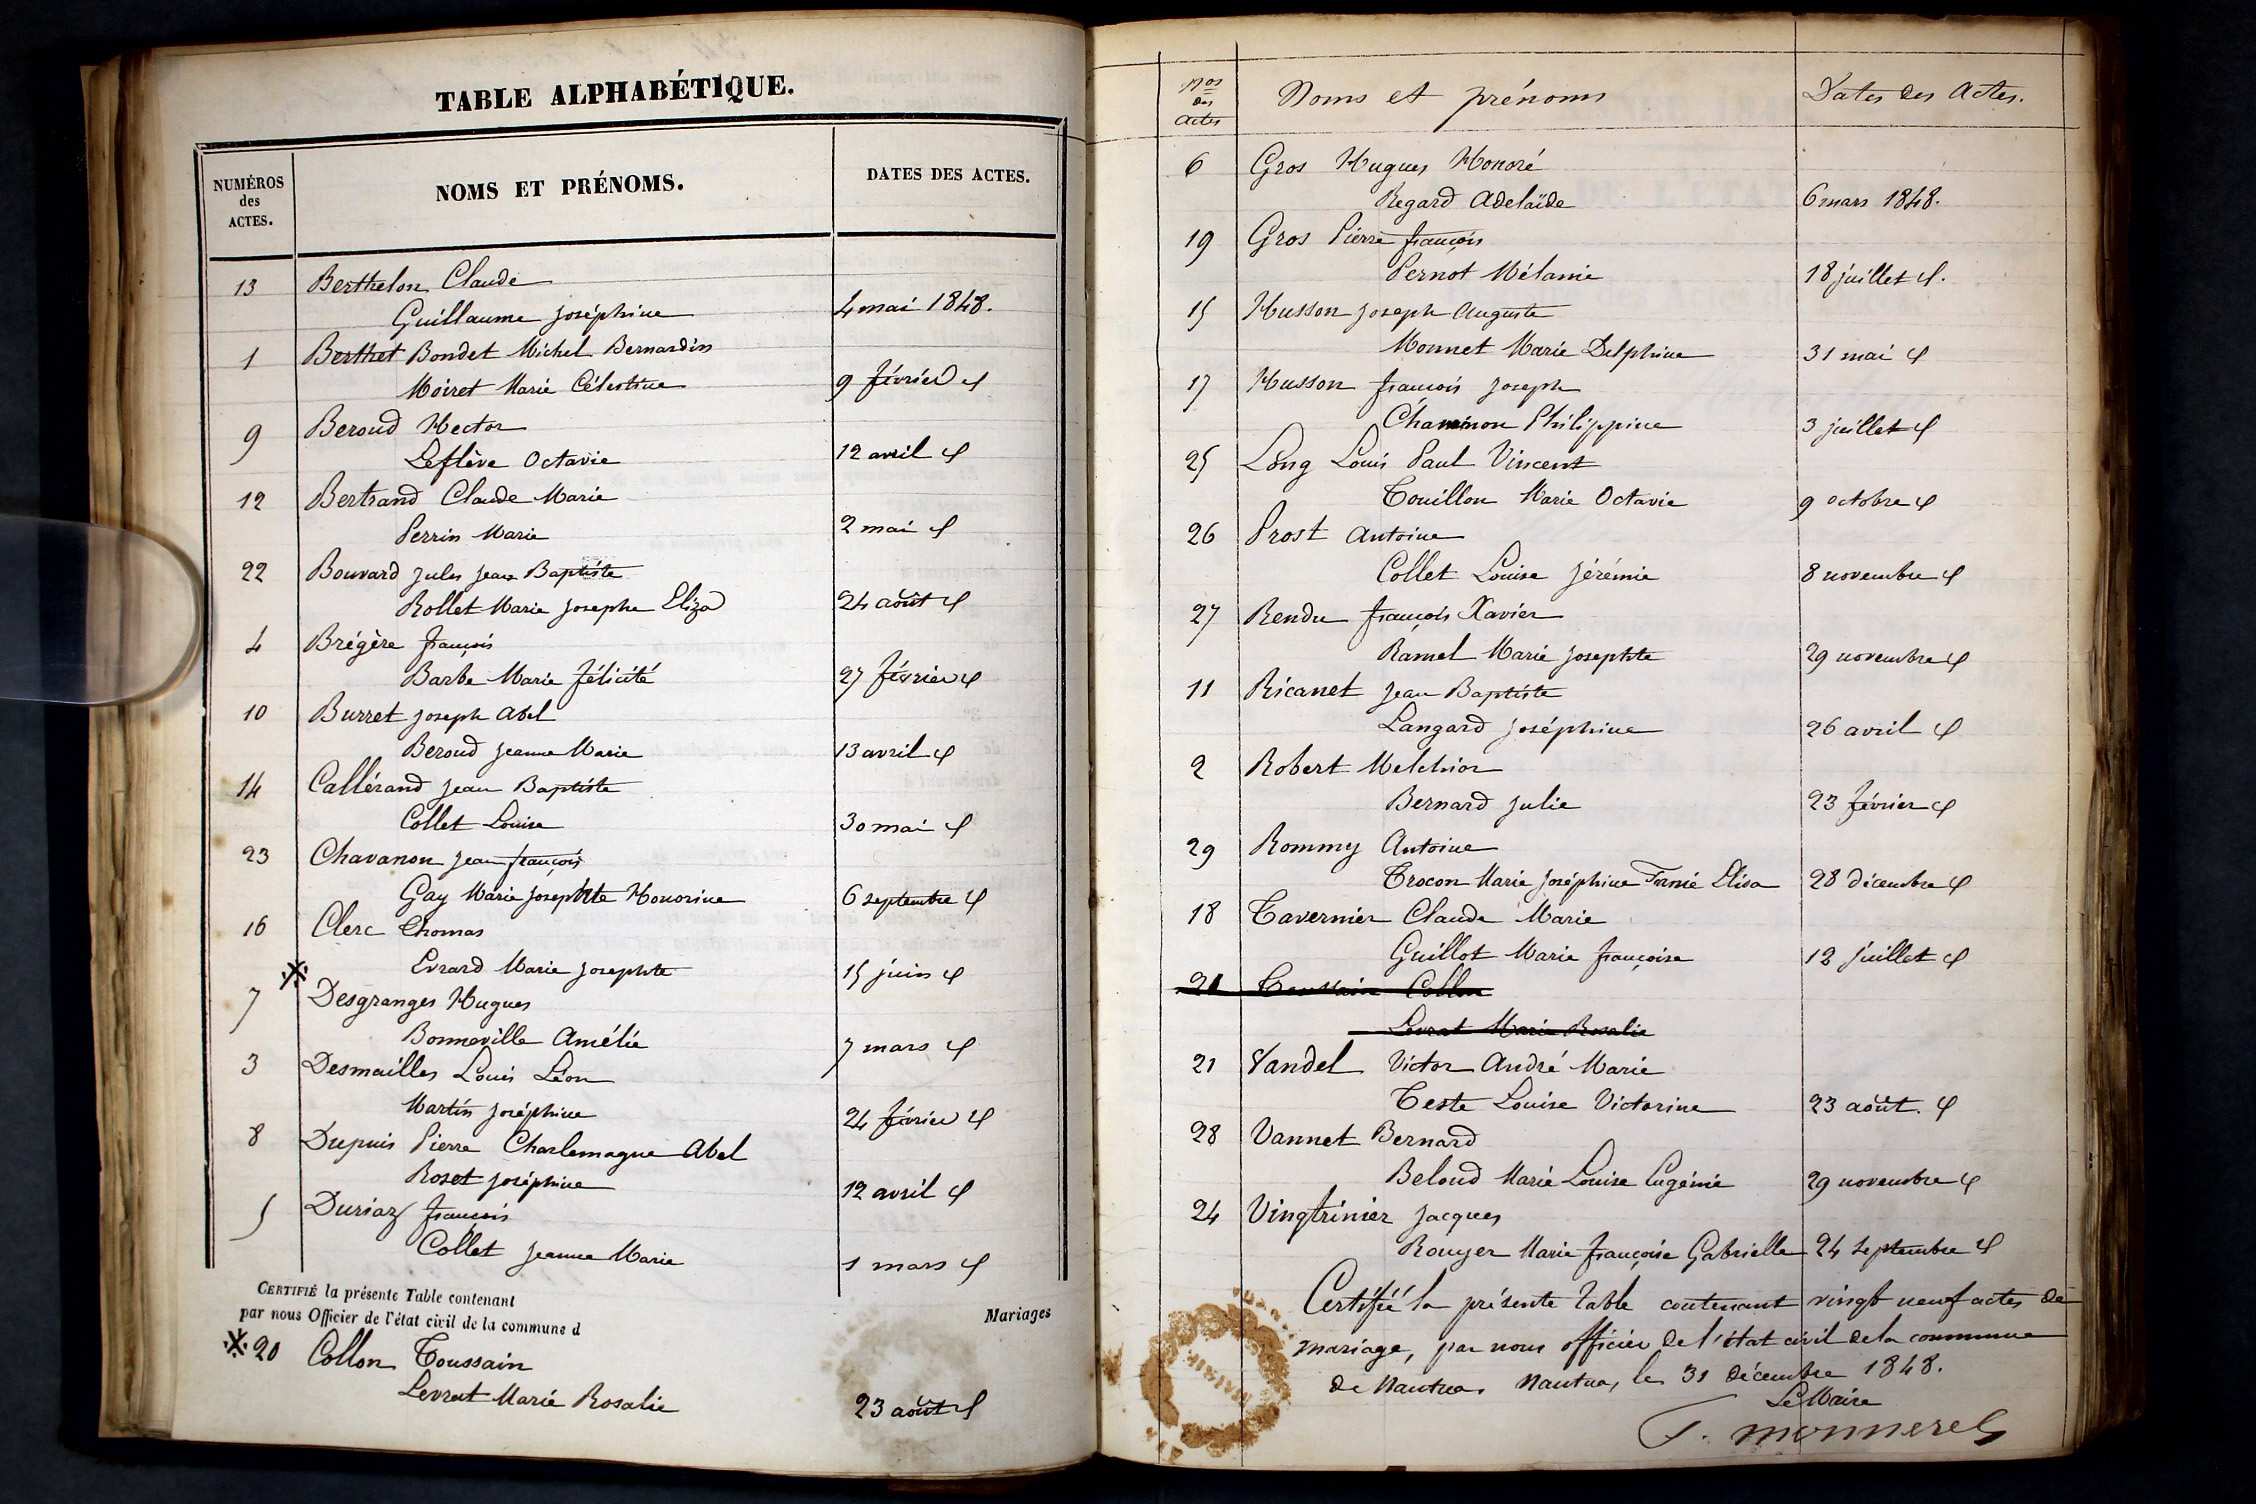 TABLE ALPHABÉTIQUE.
NUMÉROS des ACTES. NOMS ET PRÉNOMS. DATES DES ACTES.
13 Berthelon Claude
Guillaume Joséphine 4 mai 1848.
1 Berthet Bondet Michel Bernardin
Moiret Marie Célestine 9 février id
9 Beroud Hector
Leflève Octavie 12 avril id
12 Bertrand Claude Marie
Perrin Marie 2 mai id
22 Bouvard Jules Jean Baptiste
Rollet Marie Josephe Eliza 24 août id
4 Brégère françois
Barbe Marie félicité 27 février id
10 Burret Joseph Abel
Beroud Jeanne Marie 13 avril id
14 Callérand Jean Baptiste
Collet Louise 30 mai id
23 Chavanon Jean françois
Gay Marie Josephte Honorine 6 septembre id
16 Clerc Thomas
Evrard Marie Josephte 15 juin id
7 Desgranges Hugues
Bonneville Amélie 7 mars id
3 Desmailles Louis Léon
Martin Joséphine 24 février id
8 Dupuis Pierre Charlemagne Abel
Roset Joséphine 12 avril id
5 Duriaz françois
Collet Jeanne Marie 1 mars id
CERTIFIÉ la présente Table contenant Mariages
par nous Officier de l'état civil de la commune d
20 Collon Toussain
Levrat Marie Rosalie 23 août id
Nos des Actes Noms et prénoms Dates des Actes.
6 Gros Hugues Honoré
Regard Adelaïde 6 mars 1848.
19 Gros Pierre françois
Pernot Mélanie 18 juillet id.
15 Husson Joseph Auguste
Monnet Marie Delphine 31 mai id
17 Husson françois Joseph
Philippine 3 juillet id
25 Long Louis Paul Vincent
Touillon Marie Octavie 9 octobre id
26 Prost Antoine
Collet Louise Jérémie 8 novembre id
27 Rendu françois Xavier
Ramel Marie Josephte 29 novembre id
11 Ricanet Jean Baptiste
Langard Joséphine 26 avril id
2 Robert Melchior
Bernard Julie 23 février id
29 Rommy Antoine
Trocon Marie Joséphine Elisa 28 décembre id
18 Tavernier Claude Marie
Guillot Marie françoise 12 juillet id
Toussain Collon
Levrat Marie Rosalie
21 Vandel Victor André Marie
Teste Louise Victorine 23 août. id
28 Vannet Bernard
Beloud Marie Louise Eugénie 29 novembre id
24 Vingtrinier Jacques
Rouyer Marie françoise Gabrielle 24 septembre id
Certifié la présente table contenant vingt neuf actes de
mariage, par nous officier de l'état civil de la commune
de Nantua. Nantua, le 31 décembre 1848.
Le Maire